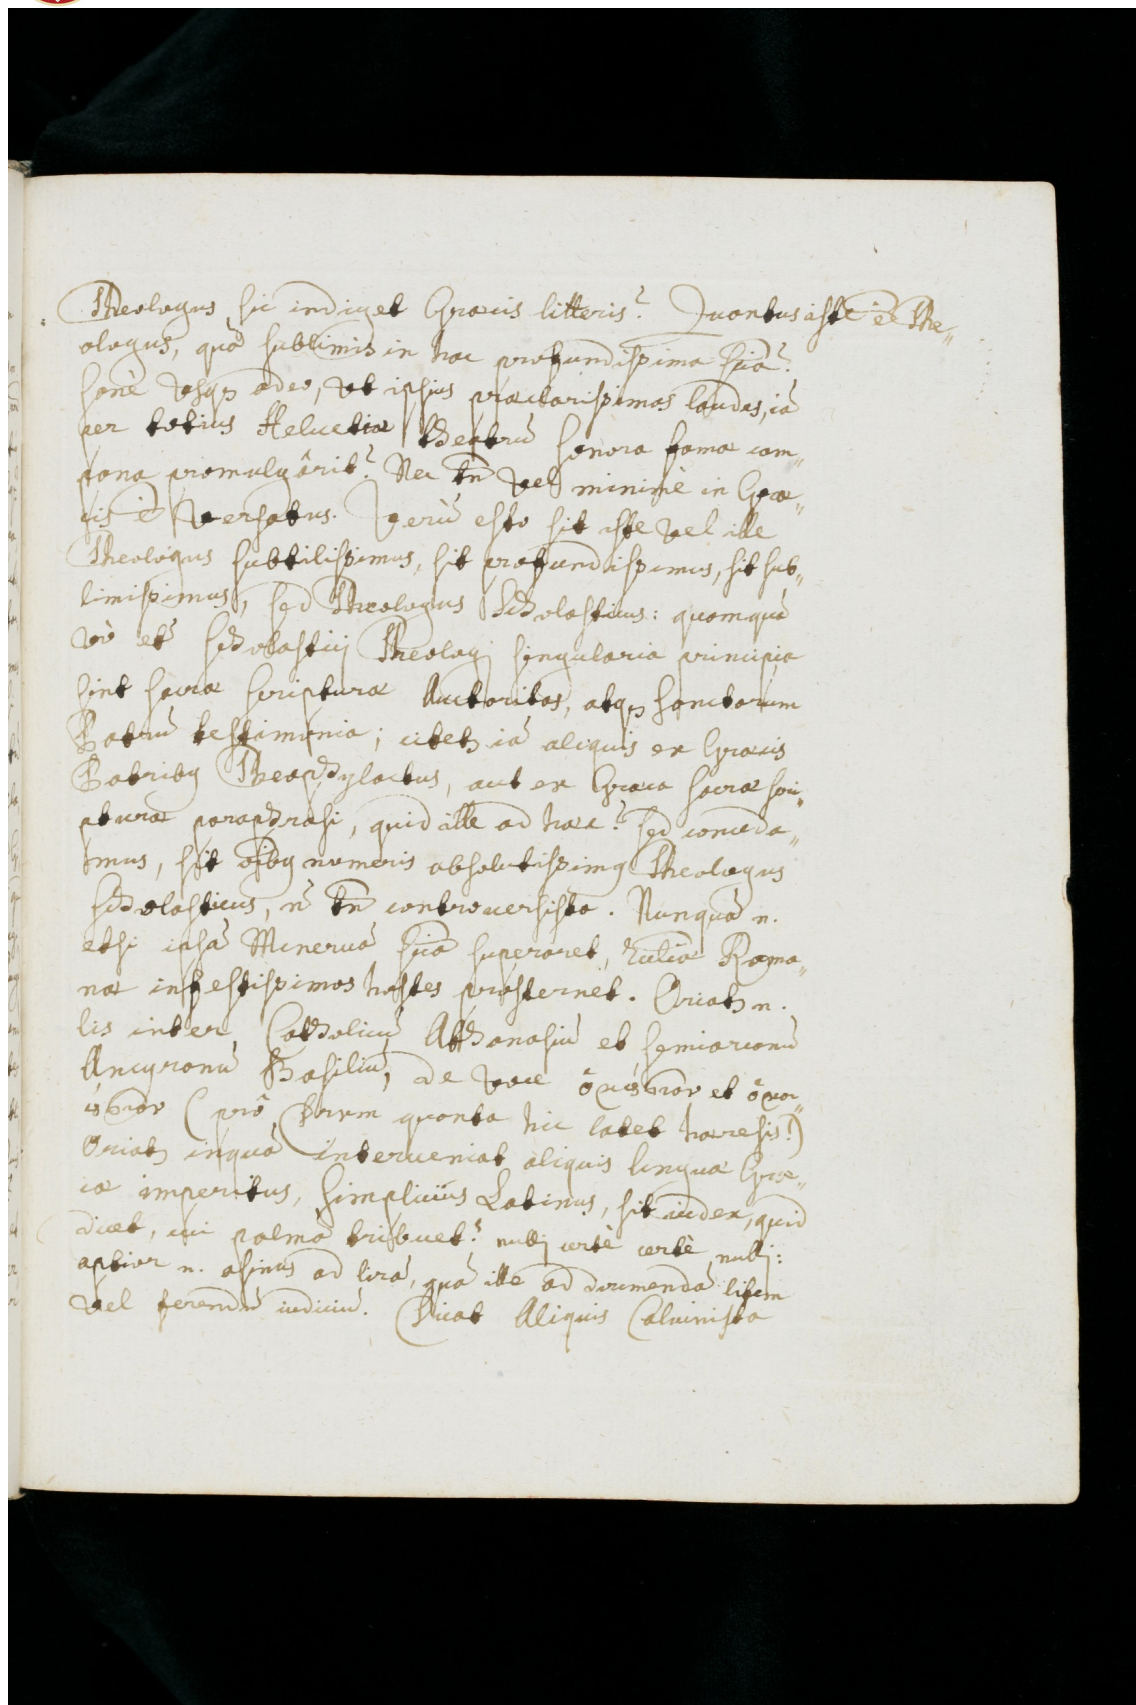 Theologus sic indiget Græcis litteris? Quantus iste ẽ The„
ologus, quã sublimis in hac profundissima sciã?
sanè usq; adeo, ut ipsius præclarissimas laudes, iã
per totius Helvetiæ theatrũ sonora famæ cam„
pana promulgârit? Nec tñ vel minimè in Græ„
cis ẽ versatus. Verũ esto sit iste vel ille
Theologus subtilissimus, sit profundissimus, sit sub„
limissimus, sed Theologus Scholasticus: quamquã
vò etũ scholasticj Theologj singularia principia
sint sacræ scripturæ Auctoritas, atq; sanctorum
Patrũ testimonia; citet; iã aliquis ex Græcis
Patribq Theophylactus, aut ex Græca sacræ scri„
pturæ paraphrasi, quid ille ad hæc? sed conceda„
mus, sit oĩbq numeris absolutissimq Theologus
scholasticus, ñ tñ controversista. Nunquã n.
etsi ipsã Minervã sciã superaret, Eccliæ Roma„
næ infestissimos hostes prosternet. Oriat; n.
lis inter Catholicũ Athanasiũ et semiarianũ
Ancyranũ Basiliũ, de voce ὁμούσιον et ὁμοι„
ούσιον (prô Deum quanta hic latet hæresis!)
Oriat; inquã interveniat aliquis linguæ Græ„
cæ imperitus, simplicius Latinus, sit iudex, quid
dicet, cui palmã tribuet? nullj certè certè nullj:
aptior n. asinus ad lirã, quã ille ad dirimendã litem
vel ferendũ iudiciũ. Dicat Aliquis Calvinista